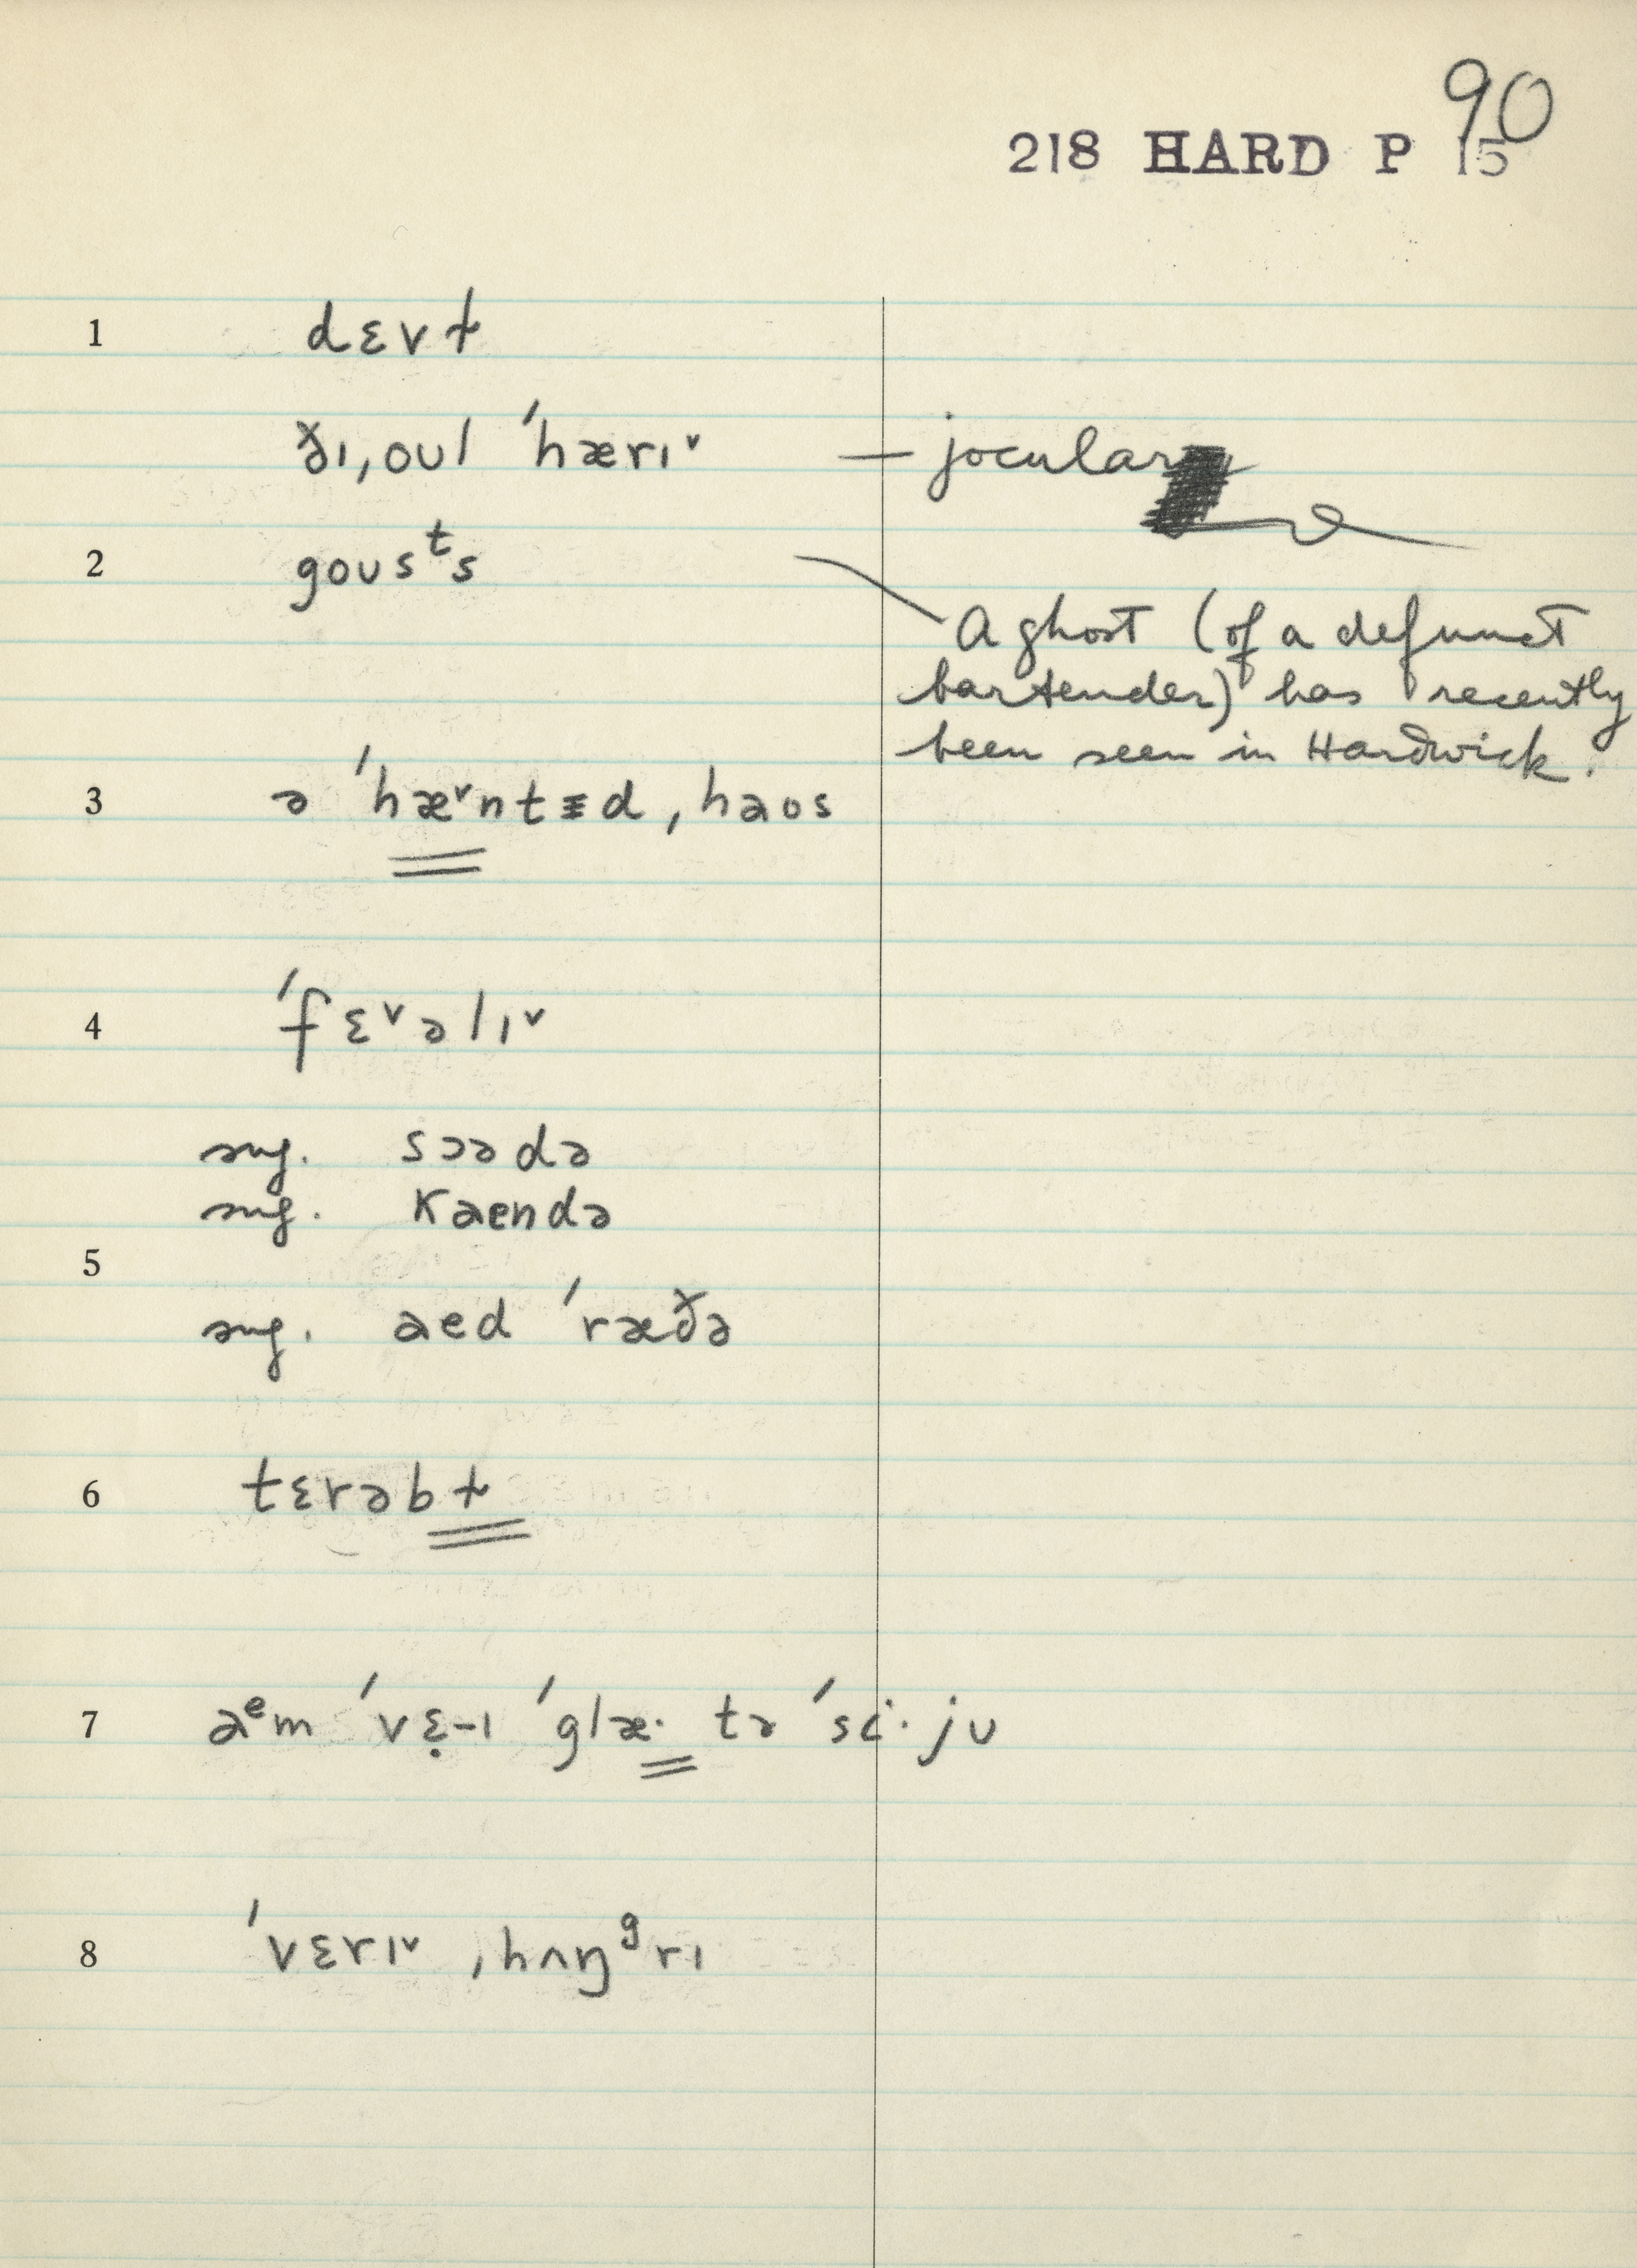 90
218 HARD P 15
1 dɛvɫ
ðɪ ˌoʊl ˈhærɪˇ — jocular
2 goʊsᵗs
A ghost (of a defunct
bartender) has recently
been seen in Hardwick.
3 ə ˈhæˇntɪd ˌhaʊs
4 ˈfɛˇəlɪˇ
sug. sɔədə
sug. kaendə
5
sug. aed ˈræðə
6 tɛrəbɫ
7 aᵉm ˈvɛ̣-ɪ ˈglæ· tə ˈsi·jʊ
8 ˈvɛrɪˇ ˌhʌŋᶢrɪ